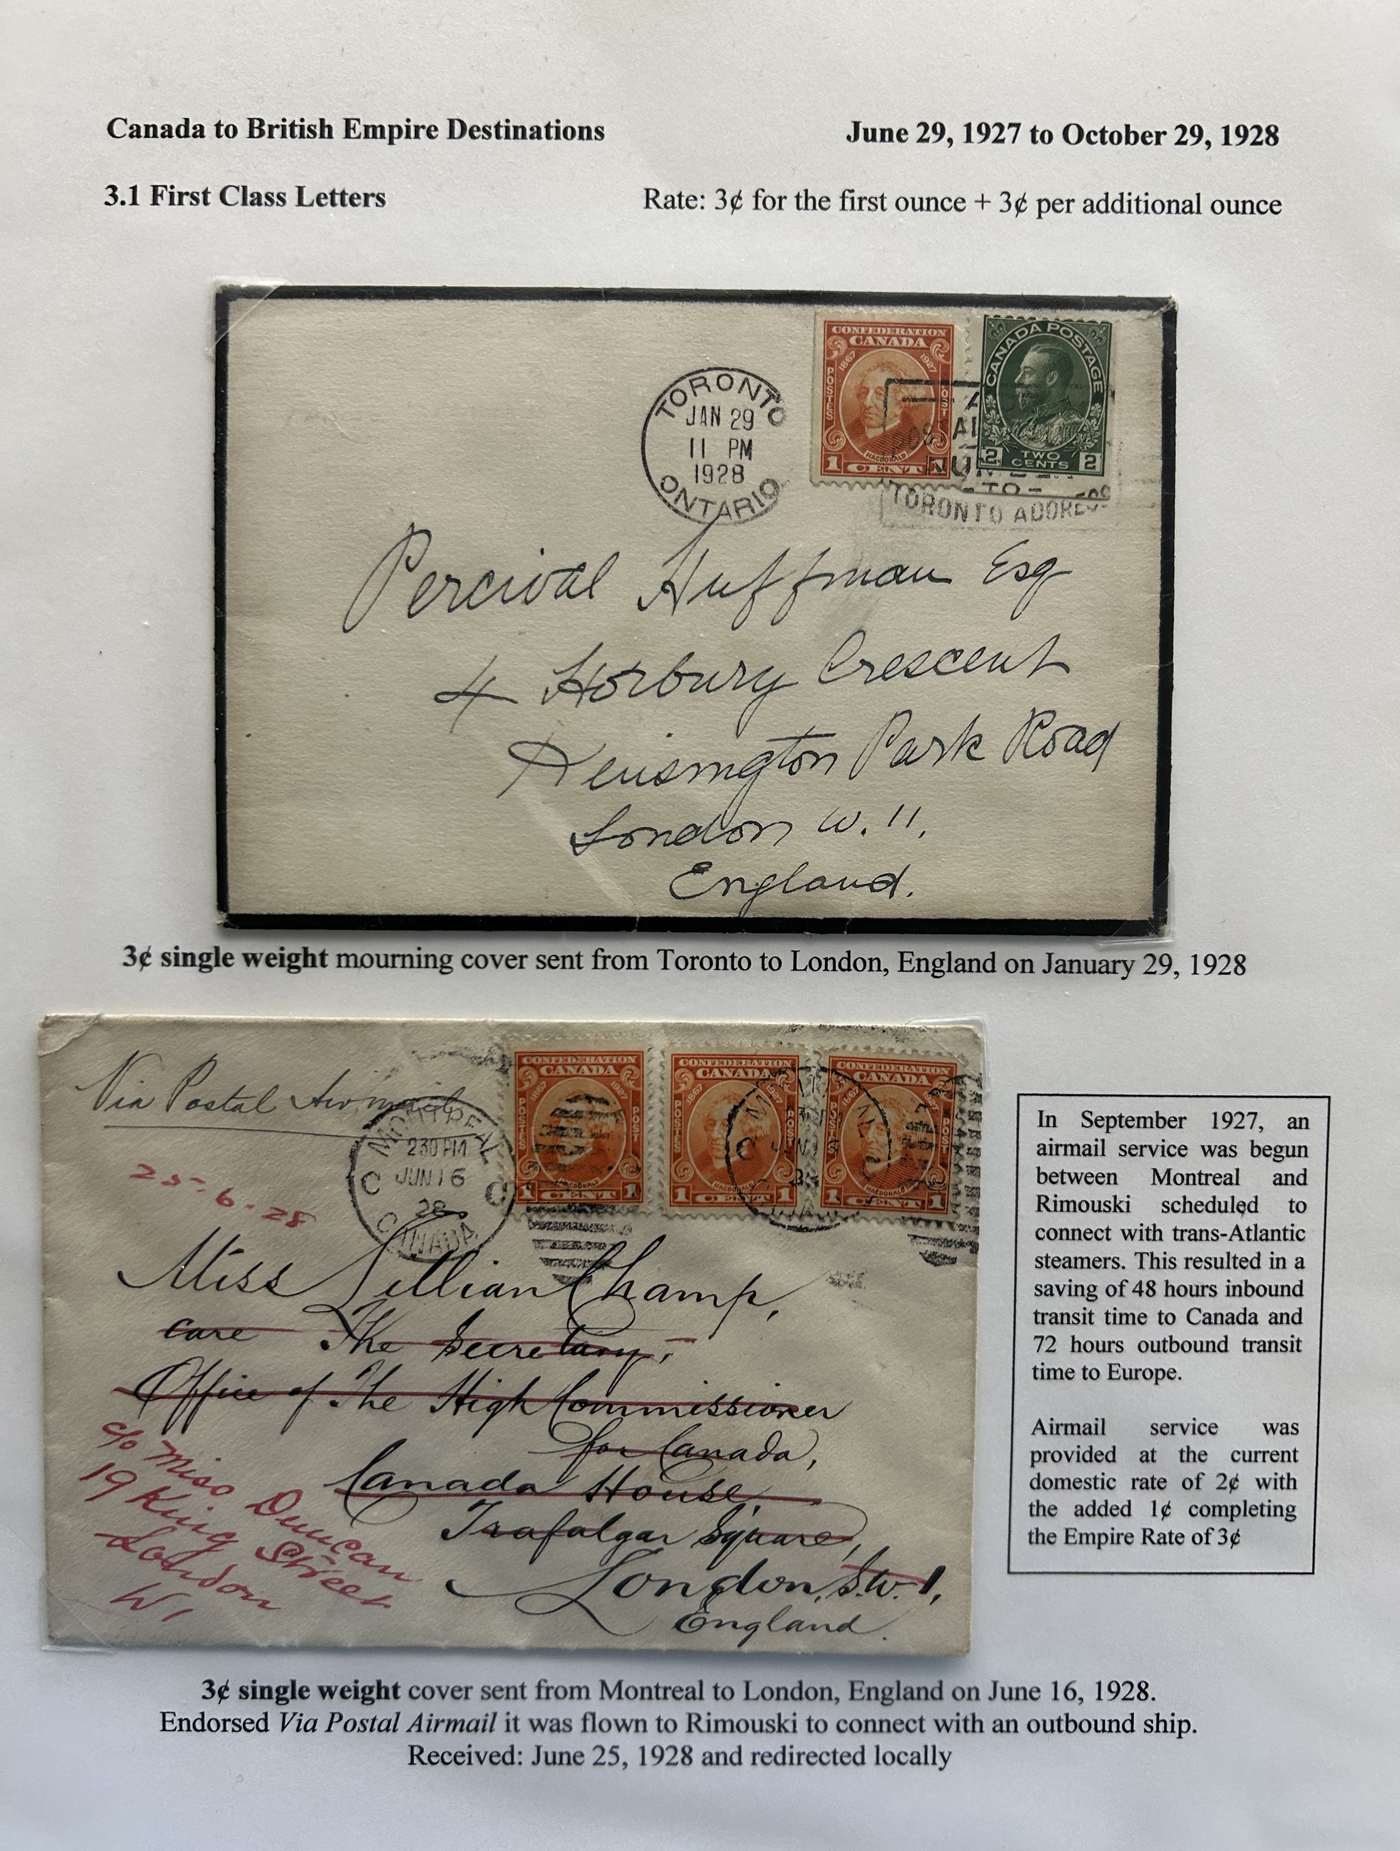 Canada to British Empire Destinations June 29, 1927 to October 29, 1928
3.1 First Class Letters Rate: 3¢ for the first ounce + 3¢ per additional ounce
CONFEDERATION
CANADA
1867 1927
POSTES POST
MACDONALD
1 CENT 1
CANADA POSTAGE
2 TWO CENTS 2
TORONTO
JAN 29
11 PM
1928
ONTARIO
TO
TORONTO ADDRESS
Percival Huffman Esq
4 Horbury Crescent
Kensington Park Road
London W. 11.
England.
3¢ single weight mourning cover sent from Toronto to London, England on January 29, 1928
Via Postal Airmail
25-6-28
MONTREAL
2 30 PM
JUN 16
28
CANADA
CONFEDERATION
CANADA
1867 1927
POSTES POST
MACDONALD
1 CENT 1
CONFEDERATION
CANADA
1867 1927
POSTES
MACDONALD
1 CENT 1
CONFEDERATION
CANADA
1 CENT 1
Miss Lillian Champ,
care The Secretary,
Office of The High Commissioner
for Canada,
Canada House,
Trafalgar Square,
London, S.W. 1,
England.
c/o Miss Duncan
19 King Street
London
W1
In September 1927, an
airmail service was begun
between Montreal and
Rimouski scheduled to
connect with trans-Atlantic
steamers. This resulted in a
saving of 48 hours inbound
transit time to Canada and
72 hours outbound transit
time to Europe.
Airmail service was
provided at the current
domestic rate of 2¢ with
the added 1¢ completing
the Empire Rate of 3¢
3¢ single weight cover sent from Montreal to London, England on June 16, 1928.
Endorsed Via Postal Airmail it was flown to Rimouski to connect with an outbound ship.
Received: June 25, 1928 and redirected locally